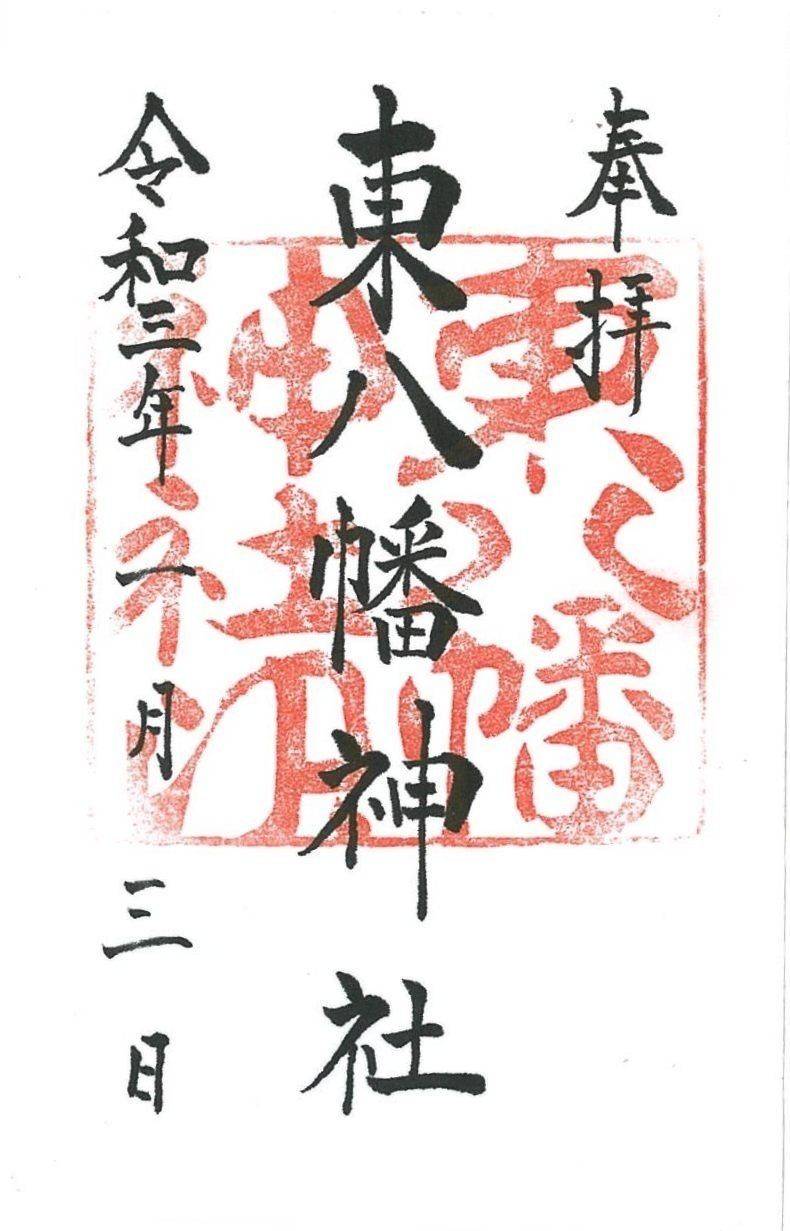 奉拝
東八幡神社
令和三年一月三日
東八幡神社印